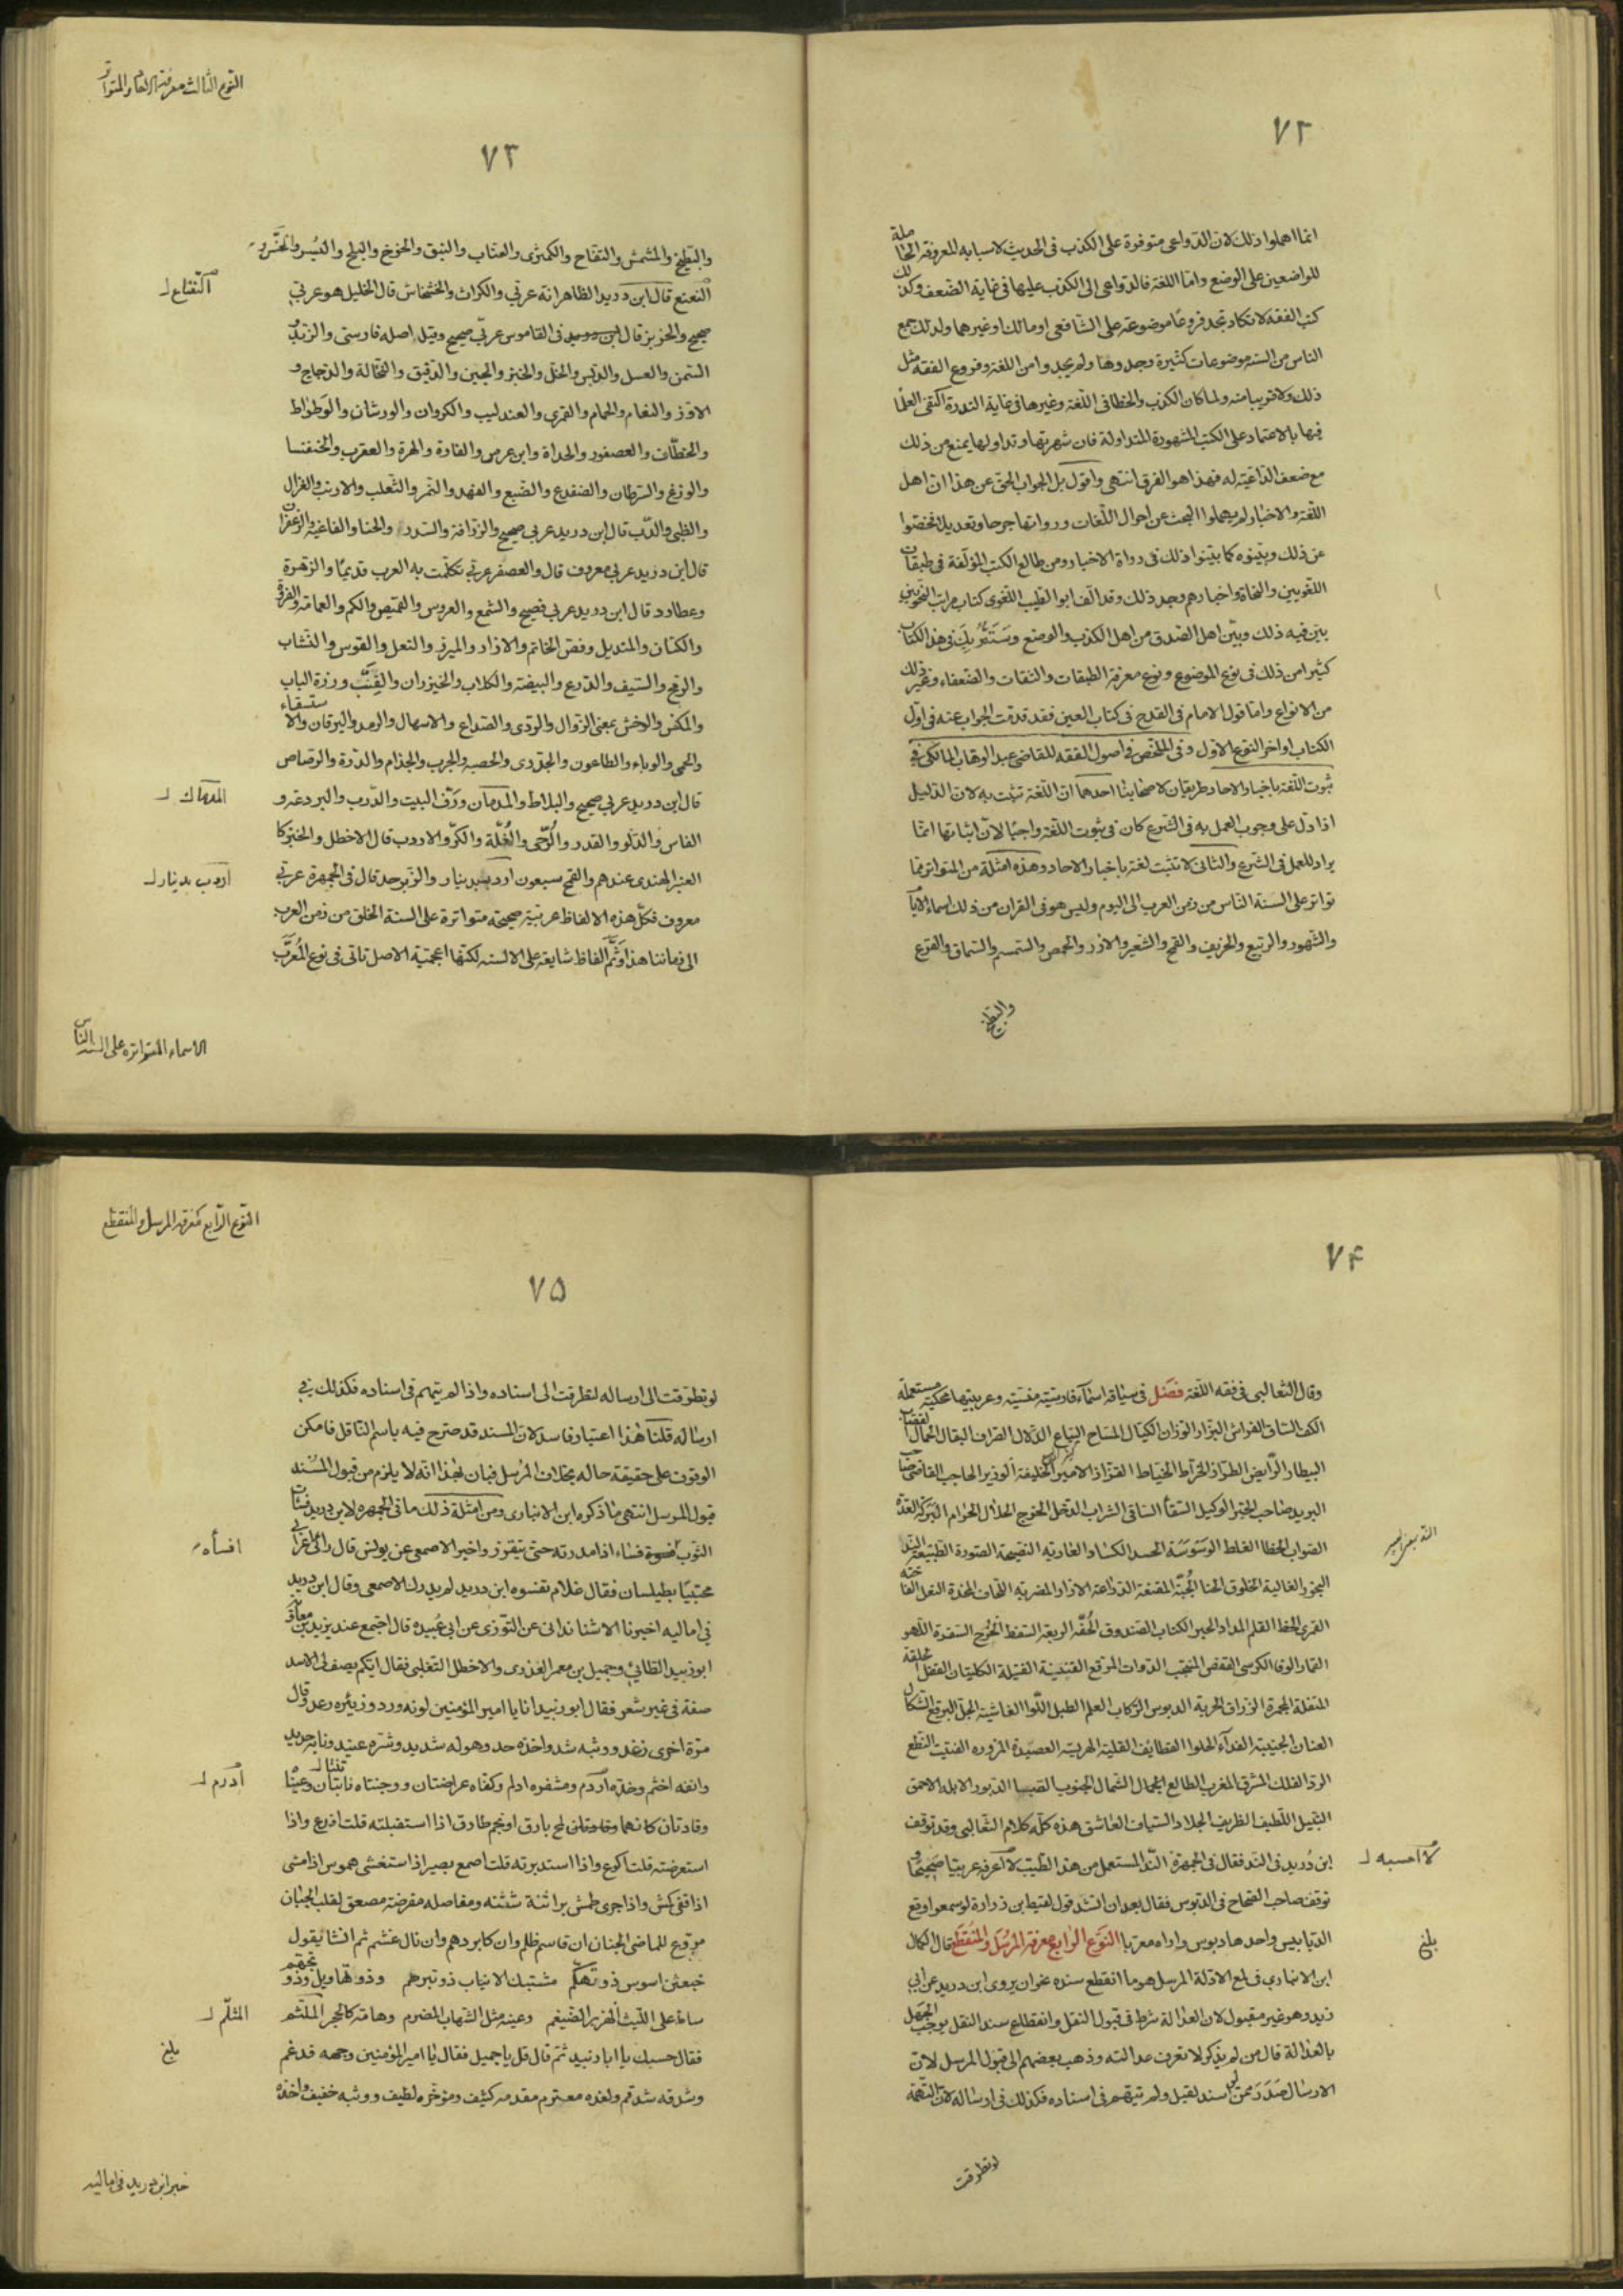 ٧٢
انما اهملوا ذلك لان الدواعى متوفرة على الكذب فى الحديث لاسبابه المعروفة الحاملة
للواضعين على الوضع واما اللغة فالدواعى الى الكذب عليها فى غاية الضعف وكذلك
كتب الفقه لا تكاد تجد فروعا موضوعة على الشافعى او مالك او غيرهما ولذلك جمع
الناس من السنه موضوعات كثيرة وجدوها ولم يجدوا من اللغة وفروع الفقه مثل
ذلك ولا قريبا منه ولما كان الكذب والخطا فى اللغة وغيرها فى غاية الندرة اكتفى العلما
فيها بالاعتماد على الكتب المشهورة المتداولة فان شهرتها وتداولها يمنع من ذلك
مع ضعف الداعية له فهذا هو الفرق انتهى واقول بل الجواب الحق عن هذا ان اهل
اللغة والاخبار لم يهملوا البحث عن احوال اللغات ورواتها جرحا وتعديلا بل فحصوا
عن ذلك وبينوه كما بينوا ذلك فى رواة الاخبار ومن طالع الكتب المؤلفة فى طبقات
اللغويين والنحاة واخبارهم وجد ذلك وقد الف ابو الطيب اللغوى كتاب مراتب النحويين
بين فيه ذلك وبين اهل الصدق من اهل الكذب والوضع وستمر بك فى هذا الكتاب
كثيرا من ذلك فى نوع الموضوع ونوع معرفة الطبقات والثقات والضعفاء وغير ذلك
من الانواع واما قول الامام فى القدح فى كتاب العين فقد قدمت الجواب عنه فى اول
الكتاب اواخر النوع الاول وفى الملخص فى اصول الفقه للقاضى عبد الوهاب المالكى فى
ثبوت اللغة باخبار الاحاد طريقان لاصحابنا احدهما ان اللغة تثبت به لان الدليل
اذا دل على وجوب العمل به فى الشرع كان فى ثبوت اللغة واجبا لان اثباتها انما
يراد للعمل فى الشرع والثانى لا تثبت لغة باخبار الاحاد وهذه امثلة من المتواتر مما
تواتر على السنة الناس من زمن العرب الى اليوم وليس هو فى القران من ذلك اسماء الايام
والشهور والربيع والخريف والقمح والشعير والارز والحمص والسمسم والسماق والقرع
والبطيخ
النوع الثالث معرفة العام والمتواتر
٧٣
والبطيخ والمشمش والتفاح والكمثرى والعناب والنبق والخوخ والبلح والبسر والخس و
النعنع قال ابن دريد الظاهر انه عربى والكراث والخشخاش قال الخليل هو عربى
صحيح والخربز قال فى القاموس عربى صحيح وقيل اصله فارسى والزبد
السمن والعسل والدبس والخل والخبز والجبن والدقيق والنخالة والدجاج و
الاوز والنعام والحمام والقمرى والعندليب والكروان والورشان والوطواط
والخطاف والعصفور والحداة وابن عرس والفارة والهرة والعقرب والخنفسا
والوزغ والسرطان والضفدع والضبع والفهد والنمر والثعلب والارنب والغزال
والظبى والدب قال ابن دريد عربى صحيح والزرافة والسدر والحنا والفاغية والزعفران
قال ابن دريد عربى معروف قال والعصفر عربى تكلمت به العرب قديما والزهرة
وعطارد قال ابن دريد عربى فصيح والشمع والعروس والقميص والكم والعمامة والفرو
والكتان والمنديل وفص الخاتم والازار والميزر والنعل والقوس والنشاب
والرمح والسيف والدرع والبيضة والكلاب والخيزران والقنب ورزة الباب
والمكس والاخش بمعنى الزوال والردى والصداع والاسهال والرمد واليرقان والاستسقاء
والحمى والوباء والطاعون والجدرى والحصبه والجرب والجذام والدرة والرصاص
قال ابن دريد عربى صحيح والبلاط والمدماك ورف البيت والدرب والبردعة و
الفاس والدلو والقدر والرحى والغلة والكر والاردب قال الاخطل والخبز كا
العنبر الهندى عندهم والقمح سبعون اردب بدينار والزبرجد قال فى الجمهرة عربى
معروف فكل هذه الالفاظ عربية صحيحة متواترة على السنة الخلق من زمن العرب
الى زماننا هذا وثم الفاظ شايعة على الالسنه لكنها اعجمية الاصل تاتى فى نوع المعرب
المدماك
اردب بدينار
الاسماء المتواتره على السنه الناس
٧۴
وقال الثعالبى فى فقه اللغة فصل فى سياقة اسماء فارسيتها منسية وعربيتها محكية مستعملة
الكف الساق الفراش البزاز الوزان الكيال المساح البياع الدلال الصراف البقال الجمال القصاب
البيطار الرايض الطراز الخراط الخياط القزاز الامير الخليفة الوزير الحاجب القاضى صاحب
البريد صاحب الخبر الوكيل السقا الساقى الشراب الدخل الخرج الحلال الحرام البركة العدة
الصواب الخطا الغلط الوسوسة الحسد الكساد العارية النصيحة الصورة الطبيعة الند
البخور الغالية الخلوق الحنا الجبة المقنعة الدراعة الازار المضربه اللحاف المخدة النعل الفاخته
القمرى الخط القلم المداد الحبر الكتاب الصندوق الحقه الربعة السفط الخرج السفرة اللهو
القمار الوفا الكرسى القفص الدوات المرفع القنينة الفتيلة الكلبتان القفل الحلقة
المنقلة المجمرة المزراق الحربة الدبوس الركاب العلم الطبل اللوا الغاشية الجل البرقع الشكال
العنان الجنيبة الغداء الحلوا القطايف القلية الهريسة العصيدة المزوره الفتيت النطع
الفلك المشرق المغرب الطالع الشمال الجنوب الصبا الدبور الابله الاحمق
اللطيف الظريف الجلاد السياف العاشق هذه كله كلام الثعالبى وقد توقف
ابن دريد فى الند فقال فى الجمهرة الند المستعمل من هذا الطيب لا اعرفه عربيا صحيحا و
توقف صاحب الصحاح فى الدبوس فقال بعد ان انشد قول لقيط ابن زرارة لو سمعوا وقع
الدبابيس واحدها دبوس واراه معربا النوع الرابع معرفة المرسل والمنقطع قال الكمال
ابن الانبارى فى لمع الادلة المرسل هو ما انقطع سنده نحو ان يروى ابن دريد عن ابى
زيد وهو غير مقبول لان العدالة شرط فى قبول النقل وانقطاع سند النقل يوجب الجهل
بالعدالة فان من لم يذكر لا تعرف عدالته وذهب بعضهم الى قبول المرسل لان
الارسال صدر ممن لو اسند لقبل ولم يتهم فى اسناده فكذلك فى ارساله لان التهمة
لا احسبه
بلغ
لو تطرقت
النوع الرابع معرفة المرسل والمنقطع
٧۵
لو تطرقت الى ارساله لتطرقت الى اسناده واذا لم يتهم فى اسناده فكذلك فى
ارساله قلنا هذا اعتبار فاسد لان المسند قد صرح فيه باسم الناقل فامكن
الوقوف على حقيقة حاله بخلاف المرسل فبان بهذا انه لا يلزم من قبول المسند
قبول المرسل انتهى ما ذكره ابن الانبارى ومن امثلة ذلك ما فى الجمهره لابن دريد فسأت
الثوب افسوه فساء اذا مددته حتى يتفزز واخبر الاصمعى عن يونس قال راى اعرابى
محتبيا بطيلسان فقال علام تفسوه ابن دريد لم يدرك الاصمعى وقال ابن دريد
فى اماليه اخبرنا الاشناندانى عن التوزى عن ابى عبيدة قال اجتمع عند يزيد بن معاوية
ابو زبيد الطائى وجميل بن معمر العذرى والاخطل التغلبى فقال ايكم يصف لى الاسد
صفة فى غير شعر فقال ابو زبيد انا يا امير المؤمنين لونه ورد وزئيره رعد وقال
مرة اخرى زغد ووثبه شد واخذه حد وهوله شديد وشره عتيد ونابه حديد
وانفه اخثم وخده ادرم ومشفره ادلم وكفاه عراضتان ووجنتاه ناتئتان وعيناه
وقادتان كانهما لمح بارق او نجم طارق اذا استقبلته قلت افدع واذا
استعرضته قلت اكوع واذا استدبرته قلت اصمع بصير اذا استغشى هموس اذا مشى
اذا قفى كمش واذا جرى طمش براثنه شثنه ومفاصله مترصة مصعق لقلب الجبان
مروع للماضى الجنان ان قاسم ظلم وان كابر دهم وان نال غشم ثم انشا يقول
خبعثن اشوس ذو تهكم مشتبك الانياب ذو تبرهم وذو تهاويل وذو تجهم
ساط على الليث الهزبر الضيغم وعينه مثل الشهاب المضرم وهامة كالحجر الململم
فقال حسبك يا ابا زبيد ثم قال قل يا جميل فقال يا امير المؤمنين وجهه فدغم
وشدقه شدقم ولغده معرنزم مقدمه كثيف ومؤخره لطيف ووثبه خفيف واخذه
افسأه
ادرم
المثلم
بلغ
خبر ابن دريد فى اماليه